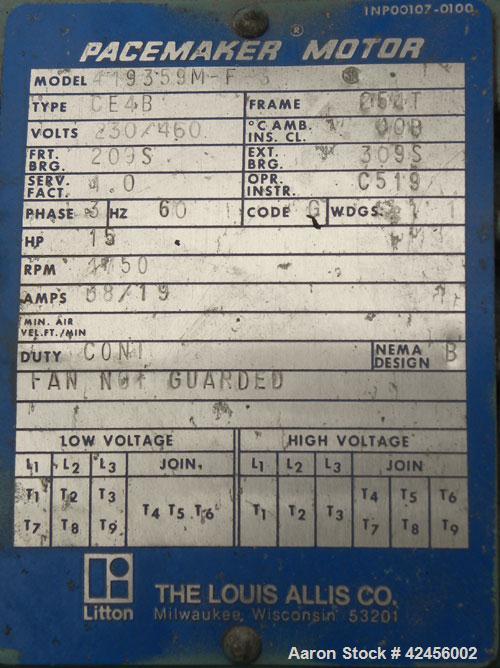 INP00107-0100
PACEMAKER® MOTOR
MODEL 419359M-F
TYPE CE4B FRAME 254T
VOLTS 230/460 °C AMB. INS. CL. 00B
FRT. BRG. 209S EXT. BRG. 309S
SERV. FACT. 1.0 OPR. INSTR. C519
PHASE 3 HZ 60 CODE G WDGS. 1
HP 15
RPM 1750
AMPS 38/19
MIN. AIR VEL.FT./MIN
DUTY CONT NEMA DESIGN B
FAN NOT GUARDED
LOW VOLTAGE HIGH VOLTAGE
L1 L2 L3 JOIN L1 L2 L3 JOIN
T1 T2 T3 T4 T5 T6 T1 T2 T3 T4 T5 T6
T7 T8 T9 T7 T8 T9
Litton THE LOUIS ALLIS CO.
Milwaukee, Wisconsin 53201
Aaron Stock # 42456002